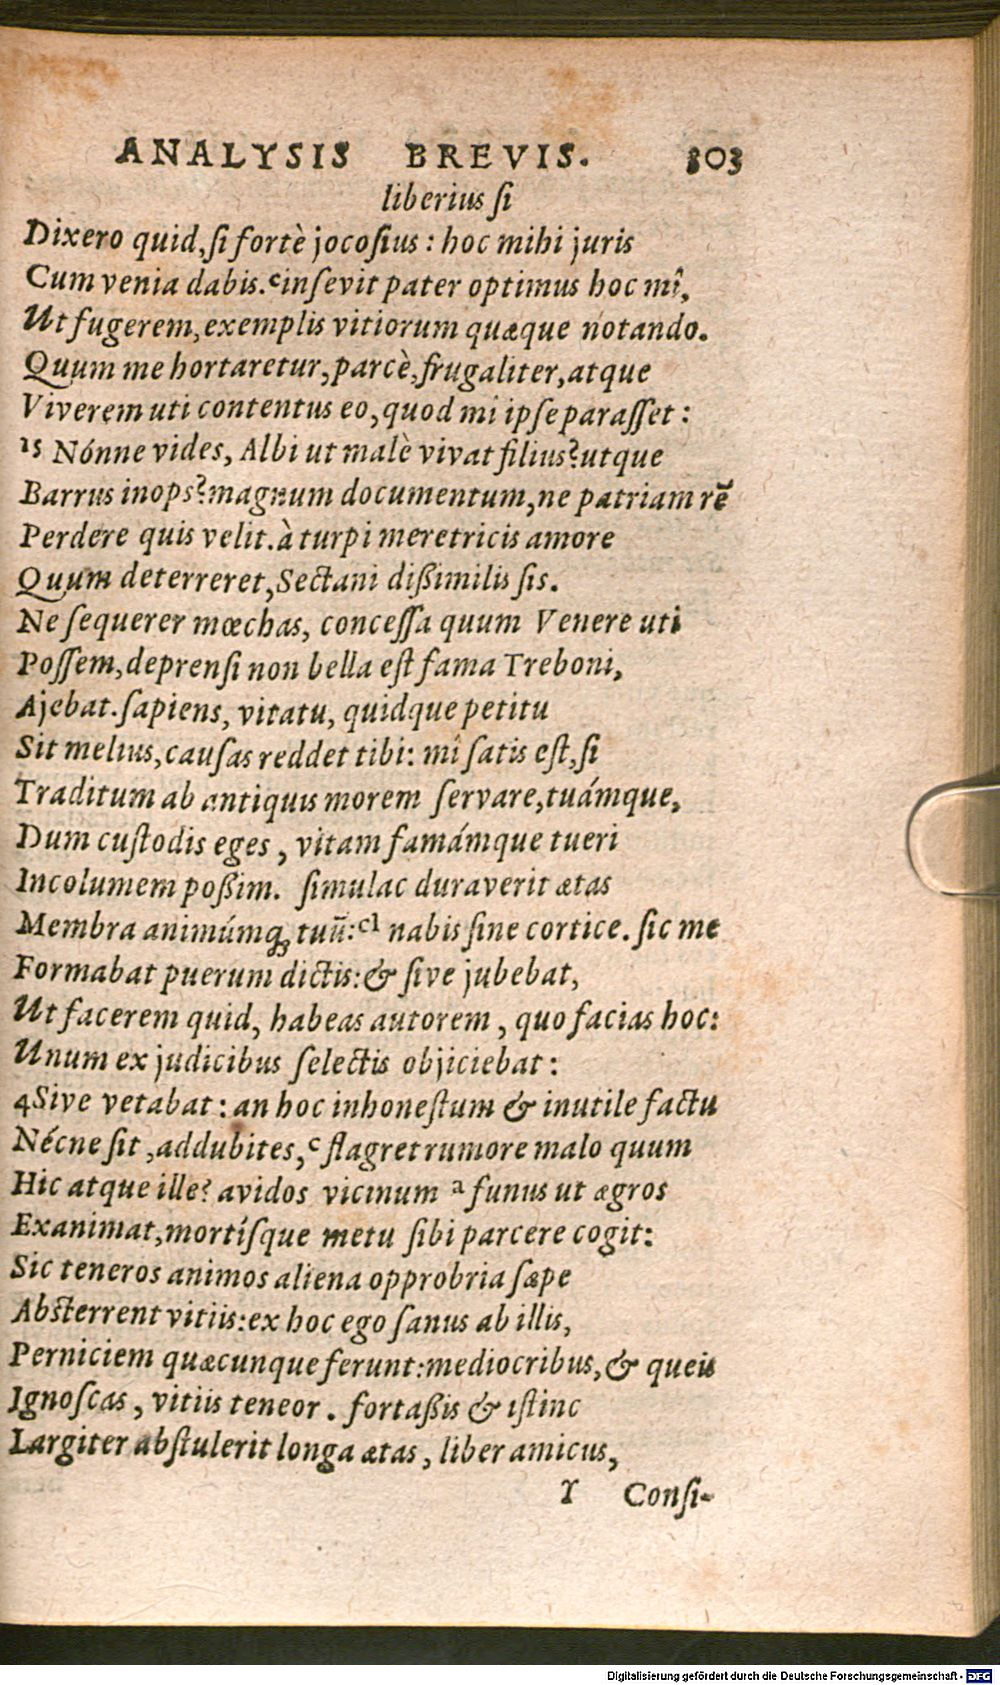 ANALYSIS BREVIS. 303
liberius si
Dixero quid, si fortè jocosius : hoc mihi juris
Cum venia dabis. ᶜinsevit pater optimus hoc mî,
Ut fugerem, exemplis vitiorum quæque notando.
Quum me hortaretur, parcè, frugaliter, atque
Viverem uti contentus eo, quod mî ipse parasset :
¹⁵ Nónne vides, Albi ut malè vivat filius? utque
Barrus inops? magnum documentum, ne patriam rē
Perdere quis velit. à turpi meretricis amore
Quum deterreret, Sectani dißimilis sis.
Ne sequerer mœchas, concessa quum Venere uti
Possem, deprensi non bella est fama Treboni,
Ajebat. sapiens, vitatu, quidque petitu
Sit melius, causas reddet tibi: mî satis est, si
Traditum ab antiquis morem servare, tuámque,
Dum custodis eges , vitam famámque tueri
Incolumem poßim. simulac duraverit ætas
Membra animúmq; tuū: ᶜˡ nabis sine cortice. sic me
Formabat puerum dictis: & sive jubebat,
Ut facerem quid, habeas autorem , quo facias hoc:
Unum ex judicibus selectis objiciebat :
4Sive vetabat : an hoc inhonestum & inutile factu
Nécne sit , addubites, ᶜ flagret rumore malo quum
Hic atque ille? avidos vicinum ᵃ funus ut ægros
Exanimat, mortísque metu sibi parcere cogit:
Sic teneros animos aliena opprobria sæpe
Absterrent vitiis: ex hoc ego sanus ab illis,
Perniciem quæcunque ferunt: mediocribus, & queis
Ignoscas , vitiis teneor . fortaßis & istinc
Largiter abstulerit longa ætas , liber amicus,
Y Consi-
Digitalisierung gefördert durch die Deutsche Forschungsgemeinschaft - DFG